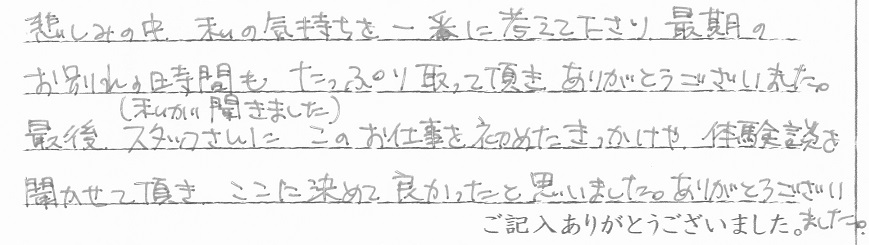 悲しみの中、私の気持ちを一番に考えて下さり最期の
お別れの時間も、たっぷり取って頂きありがとうございました。
(私が聞きました)
最後、スタッフさんにこのお仕事を初めたきっかけや、体験談を
聞かせて頂き、ここに決めて良かったと思いました。ありがとうござい
ご記入ありがとうございました。ました。